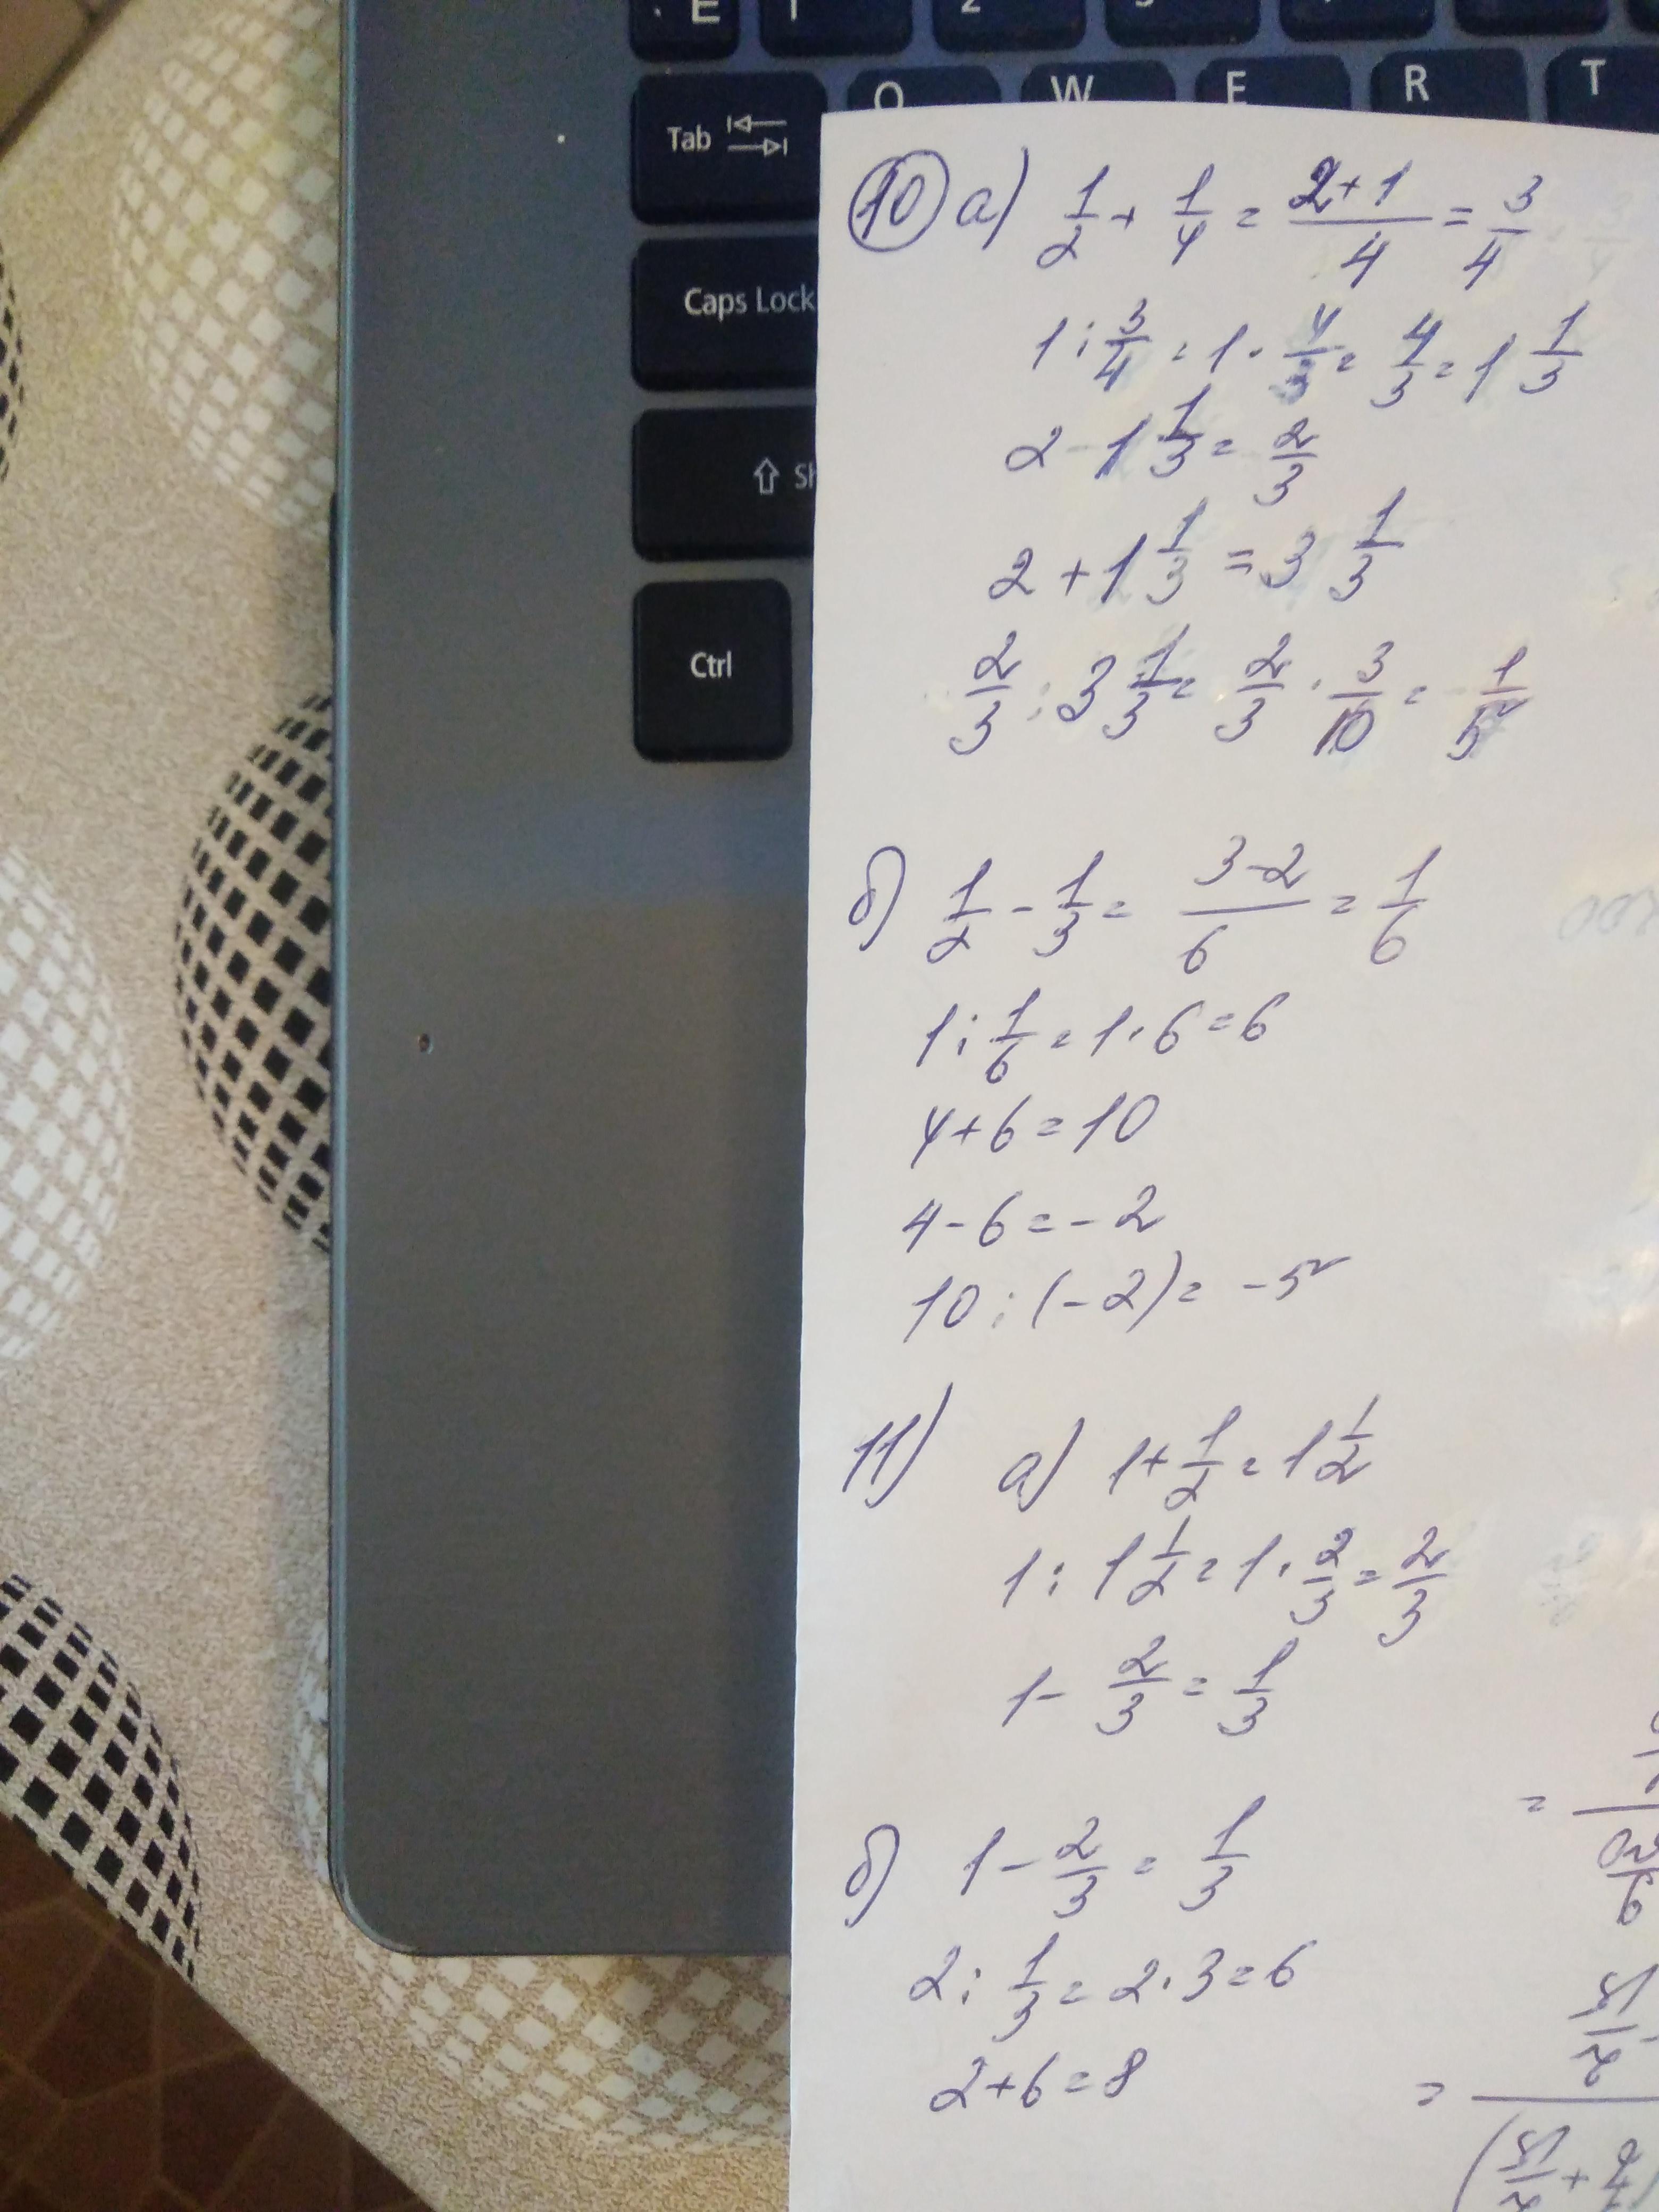 E 1 2
Q W E R T
Tab
Caps Lock
Ctrl
10 а) 1/2 + 1/4 = (2+1)/4 = 3/4
1 : 3/4 = 1 · 4/3 = 4/3 = 1 1/3
2 - 1 1/3 = 2/3
2 + 1 1/3 = 3 1/3
2/3 : 3 1/3 = 2/3 · 3/10 = 1/5
б) 1/2 - 1/3 = (3-2)/6 = 1/6
1 : 1/6 = 1 · 6 = 6
4 + 6 = 10
4 - 6 = - 2
10 : (- 2) = - 5
11) а) 1 + 1/2 = 1 1/2
1 : 1 1/2 = 1 · 2/3 = 2/3
1 - 2/3 = 1/3
б) 1 - 2/3 = 1/3
2 : 1/3 = 2 · 3 = 6
2 + 6 = 8